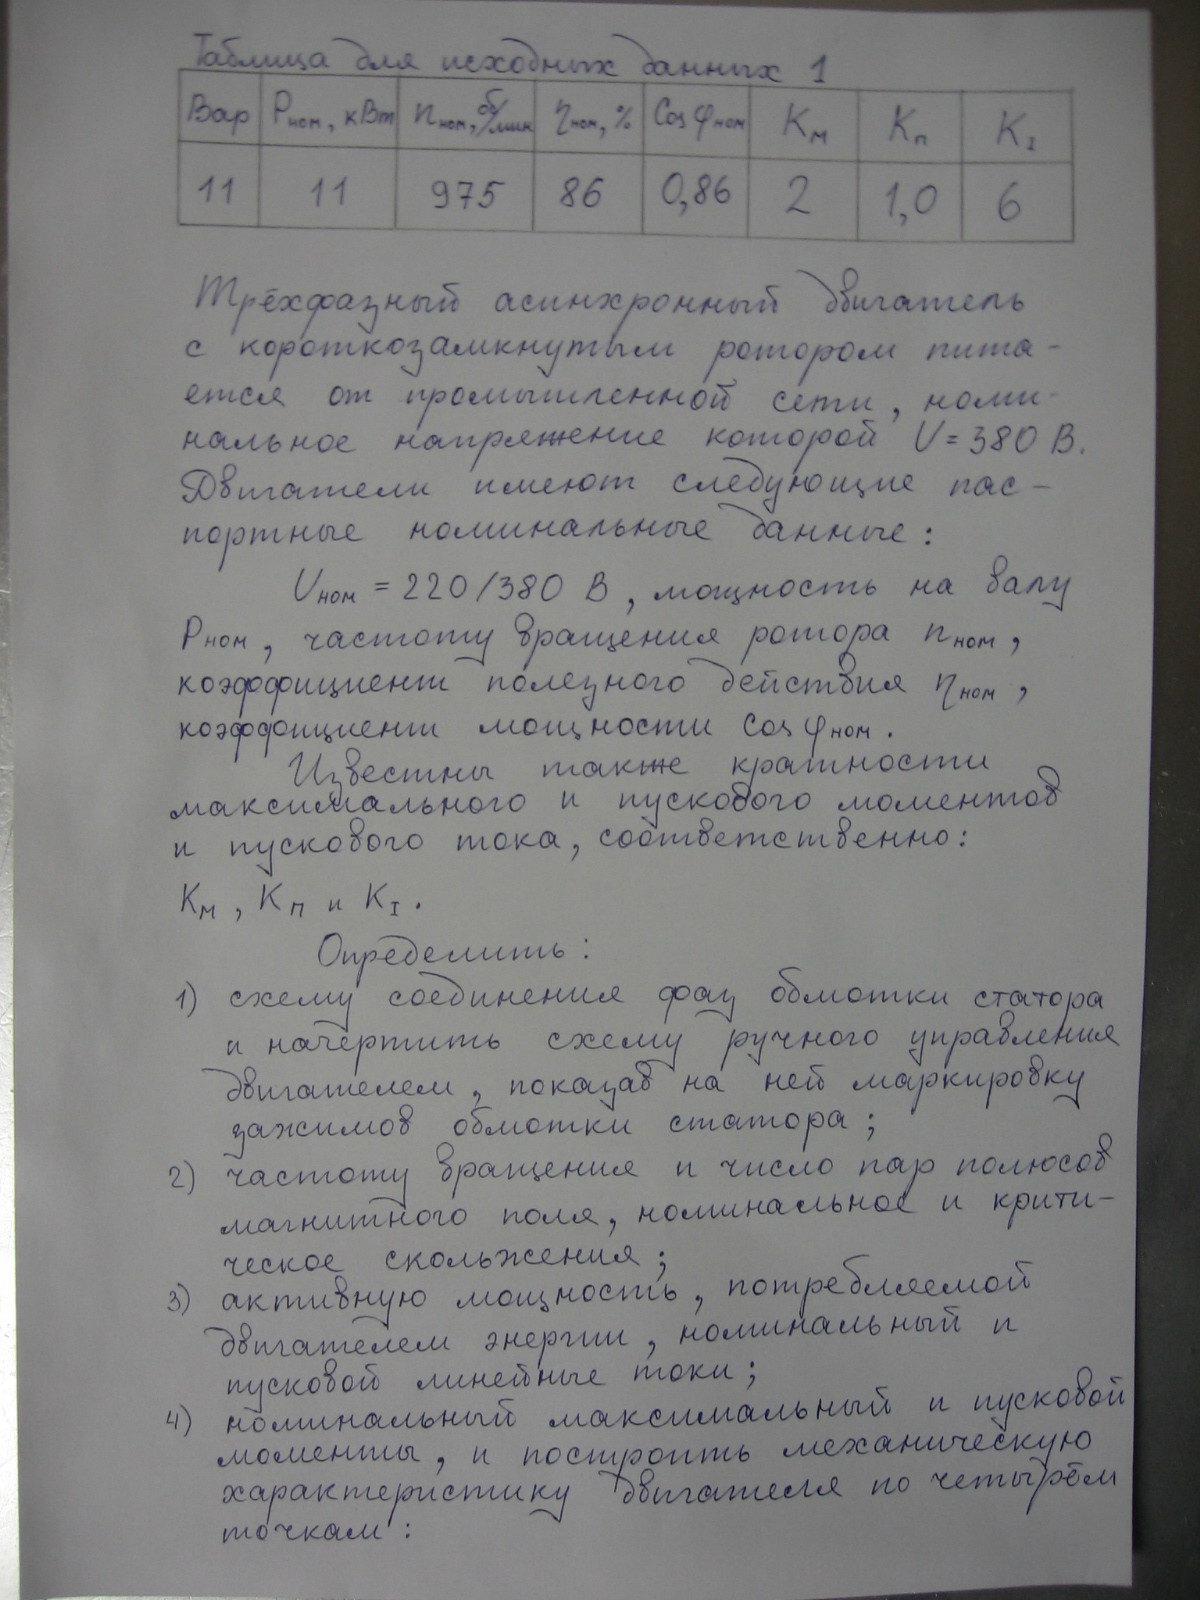 Таблица для исходных данных 1
Вар Pном, кВт nном, об/мин ηном, % Cos φном Kм Kп KI
11 11 975 86 0,86 2 1,0 6
Трёхфазный асинхронный двигатель
с короткозамкнутым ротором пита-
ется от промышленной сети, номи-
нальное напряжение которой U = 380 В.
Двигатели имеют следующие пас-
портные номинальные данные:
Uном = 220/380 В, мощность на валу
Pном, частоту вращения ротора nном,
коэффициент полезного действия ηном,
коэффициент мощности Cos φном.
Известны также кратности
максимального и пускового моментов
и пускового тока, соответственно:
Kм, Kп и KI.
Определить:
1) схему соединения фаз обмотки статора
и начертить схему ручного управления
двигателем, показав на ней маркировку
зажимов обмотки статора;
2) частоту вращения и число пар полюсов
магнитного поля, номинальное и крити-
ческое скольжения;
3) активную мощность, потребляемой
двигателем энергии, номинальный и
пусковой линейные токи;
4) номинальный максимальный и пусковой
моменты, и построить механическую
характеристику двигателя по четырём
точкам: